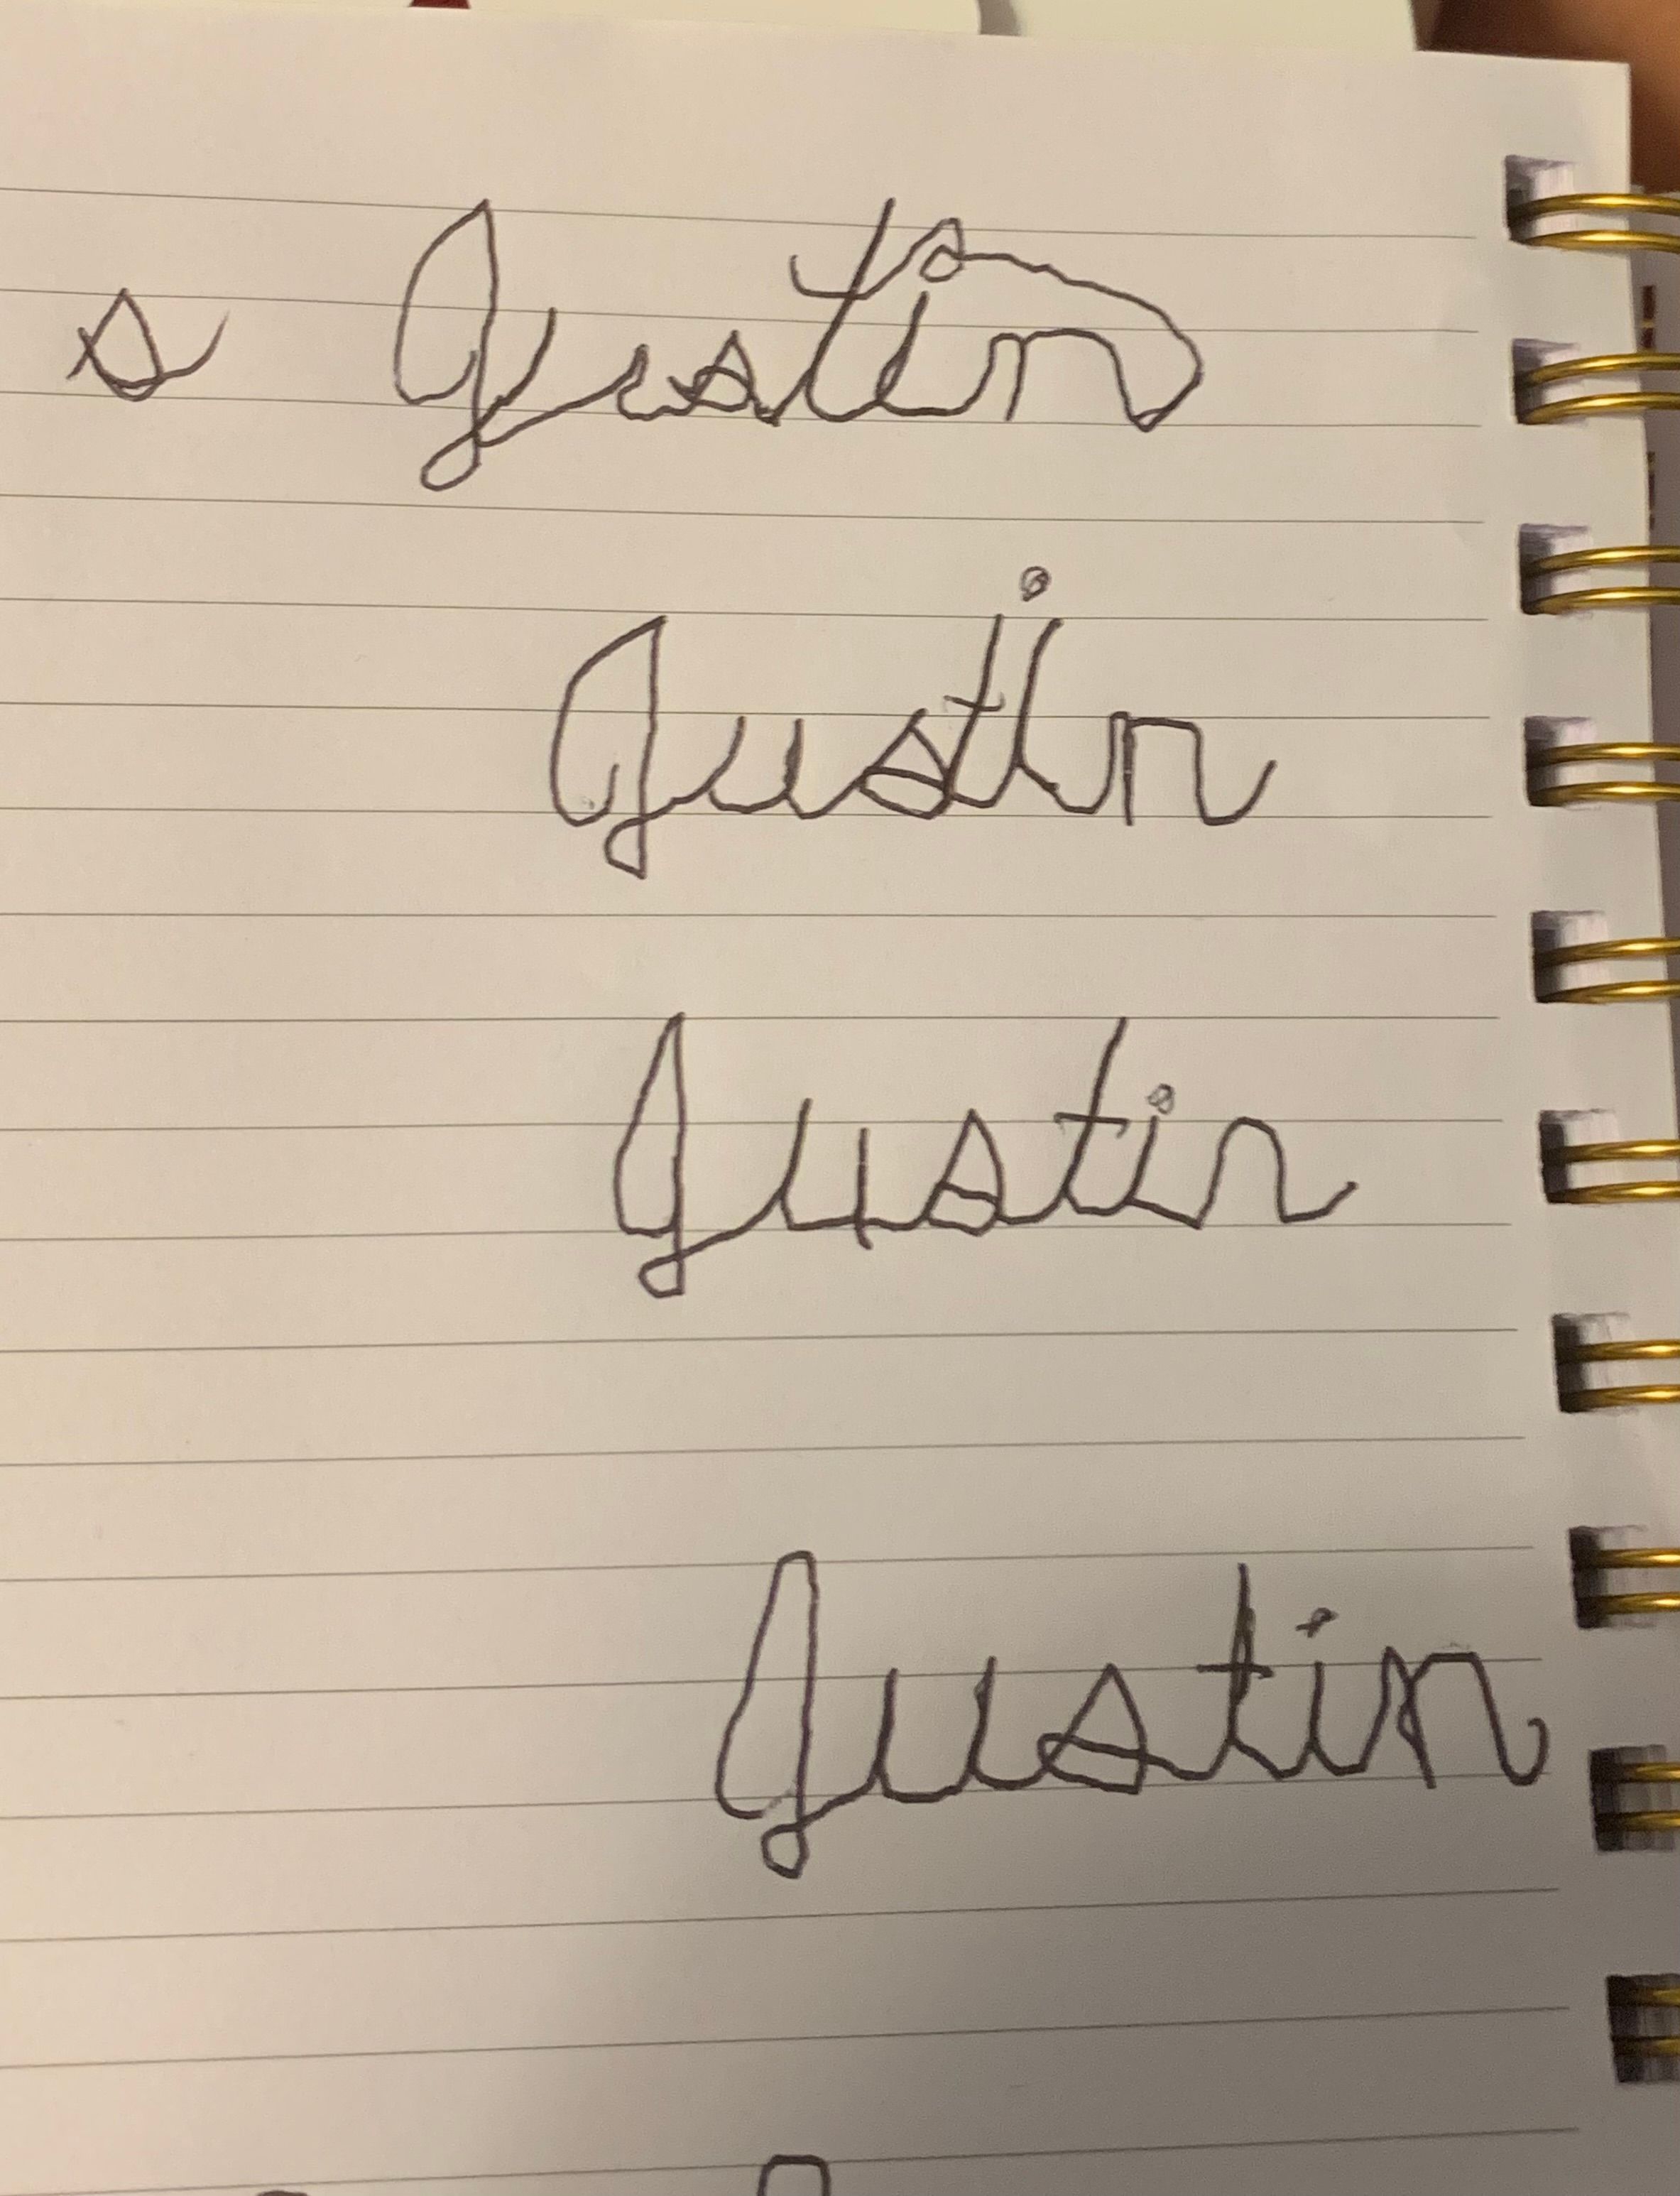 s Justin
Justin
Justin
Justin